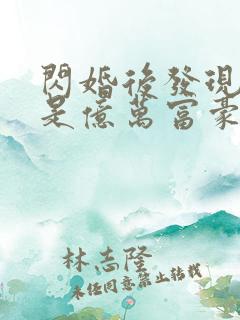 閃婚後發現
是億萬富豪
林志隆
未任同意禁止轉載